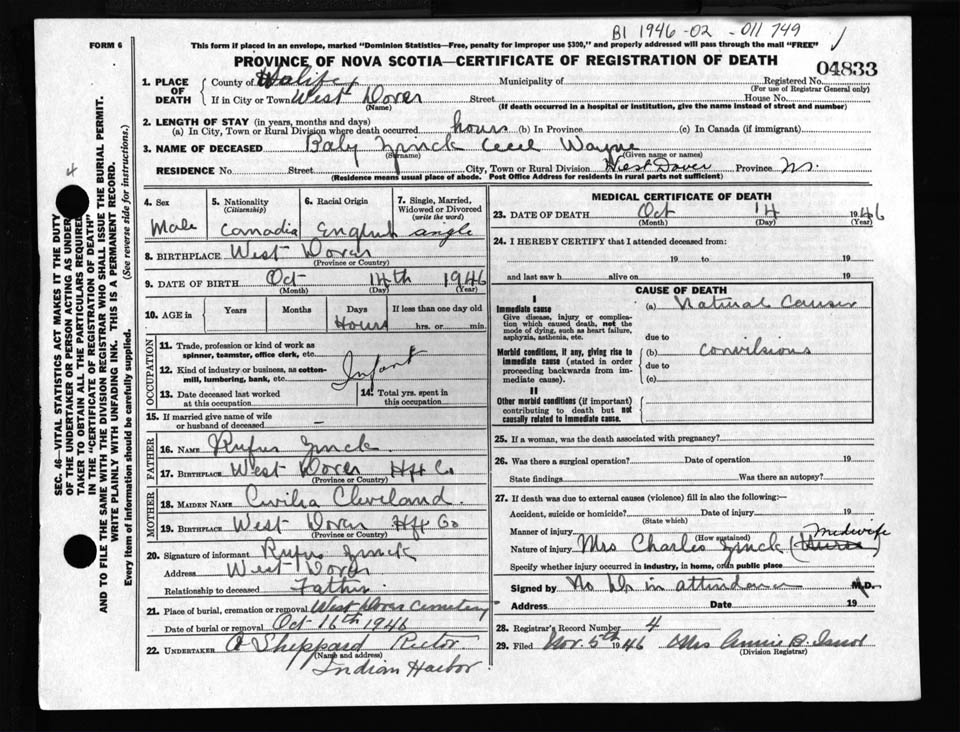 B1 1946-02-011749
FORM 6
This form if placed in an envelope, marked "Dominion Statistics—Free, penalty for improper use $300," and properly addressed will pass through the mail "FREE"
PROVINCE OF NOVA SCOTIA—CERTIFICATE OF REGISTRATION OF DEATH
04833
1. PLACE OF DEATH
County of Halifax Municipality of Registered No.
(For use of Registrar General only)
If in City or Town West Dover Street House No.
(Name) (If death occurred in a hospital or institution, give the name instead of street and number)
2. LENGTH OF STAY (in years, months and days)
(a) In City, Town or Rural Division where death occurred hours (b) In Province (c) In Canada (if immigrant)
3. NAME OF DECEASED Baby Zinck Cecil Wayne
(Surname) (Given name or names)
RESIDENCE No. Street City, Town or Rural Division West Dover Province NS.
(Residence means usual place of abode. Post Office Address for residents in rural parts not sufficient)
4. Sex 5. Nationality (Citizenship) 6. Racial Origin 7. Single, Married, Widowed or Divorced (write the word)
Male Canadia English single
8. BIRTHPLACE West Dover
(Province or Country)
9. DATE OF BIRTH Oct 14th 1946
(Month) (Day) (Year)
10. AGE in Years Months Days If less than one day old
Hours hrs. or min.
OCCUPATION
11. Trade, profession or kind of work as spinner, teamster, office clerk, etc.
12. Kind of industry or business, as cotton-mill, lumbering, bank, etc.
Infant
13. Date deceased last worked at this occupation
14. Total yrs. spent in this occupation
15. If married give name of wife or husband of deceased —
FATHER
16. NAME Rufus Zinck
17. BIRTHPLACE West Dover Hfx Co
(Province or Country)
MOTHER
18. MAIDEN NAME Cleveland.
19. BIRTHPLACE West Dover Hfx Co
(Province or Country)
20. Signature of informant Rufus Zinck
Address West Dover
Relationship to deceased Father
21. Place of burial, cremation or removal West Dover Cemetery
Date of burial or removal Oct 16th 1946
22. UNDERTAKER A Sheppard Rector
(Name and address)
Indian Harbor
MEDICAL CERTIFICATE OF DEATH
23. DATE OF DEATH Oct 14 1946
(Month) (Day) (Year)
24. I HEREBY CERTIFY that I attended deceased from:
19 to 19
and last saw h alive on 19
CAUSE OF DEATH
I
Immediate cause (a) Natural Causes
Give disease, injury or complication which caused death, not the mode of dying, such as heart failure, asphyxia, asthenia, etc.
due to
Morbid conditions, if any, giving rise to immediate cause (stated in order proceeding backwards from immediate cause).
(b) convilsions
due to
(c)
II
Other morbid conditions (if important) contributing to death but not causally related to immediate cause.
25. If a woman, was the death associated with pregnancy?
26. Was there a surgical operation? Date of operation 19
State findings Was there an autopsy?
27. If death was due to external causes (violence) fill in also the following:—
Accident, suicide or homicide? Date of injury 19
(State which)
Manner of injury Midwife
(How sustained)
Nature of injury Mrs Charles Zinck
Specify whether injury occurred in industry, in home, or in public place
Signed by No Dr in attendance M.D.
Address Date 19
28. Registrar's Record Number 4
29. Filed Nov. 5th 1946 Mrs Annie B.
(Division Registrar)
SEC. 46—VITAL STATISTICS ACT MAKES IT THE DUTY
OF THE UNDERTAKER OR PERSON ACTING AS UNDERTAKER TO OBTAIN ALL THE PARTICULARS REQUIRED
IN THE "CERTIFICATE OF REGISTRATION OF DEATH"
AND TO FILE THE SAME WITH THE DIVISION REGISTRAR WHO SHALL ISSUE THE BURIAL PERMIT.
WRITE PLAINLY WITH UNFADING INK. THIS IS A PERMANENT RECORD.
Every item of information should be carefully supplied. (See reverse side for instructions.)
4